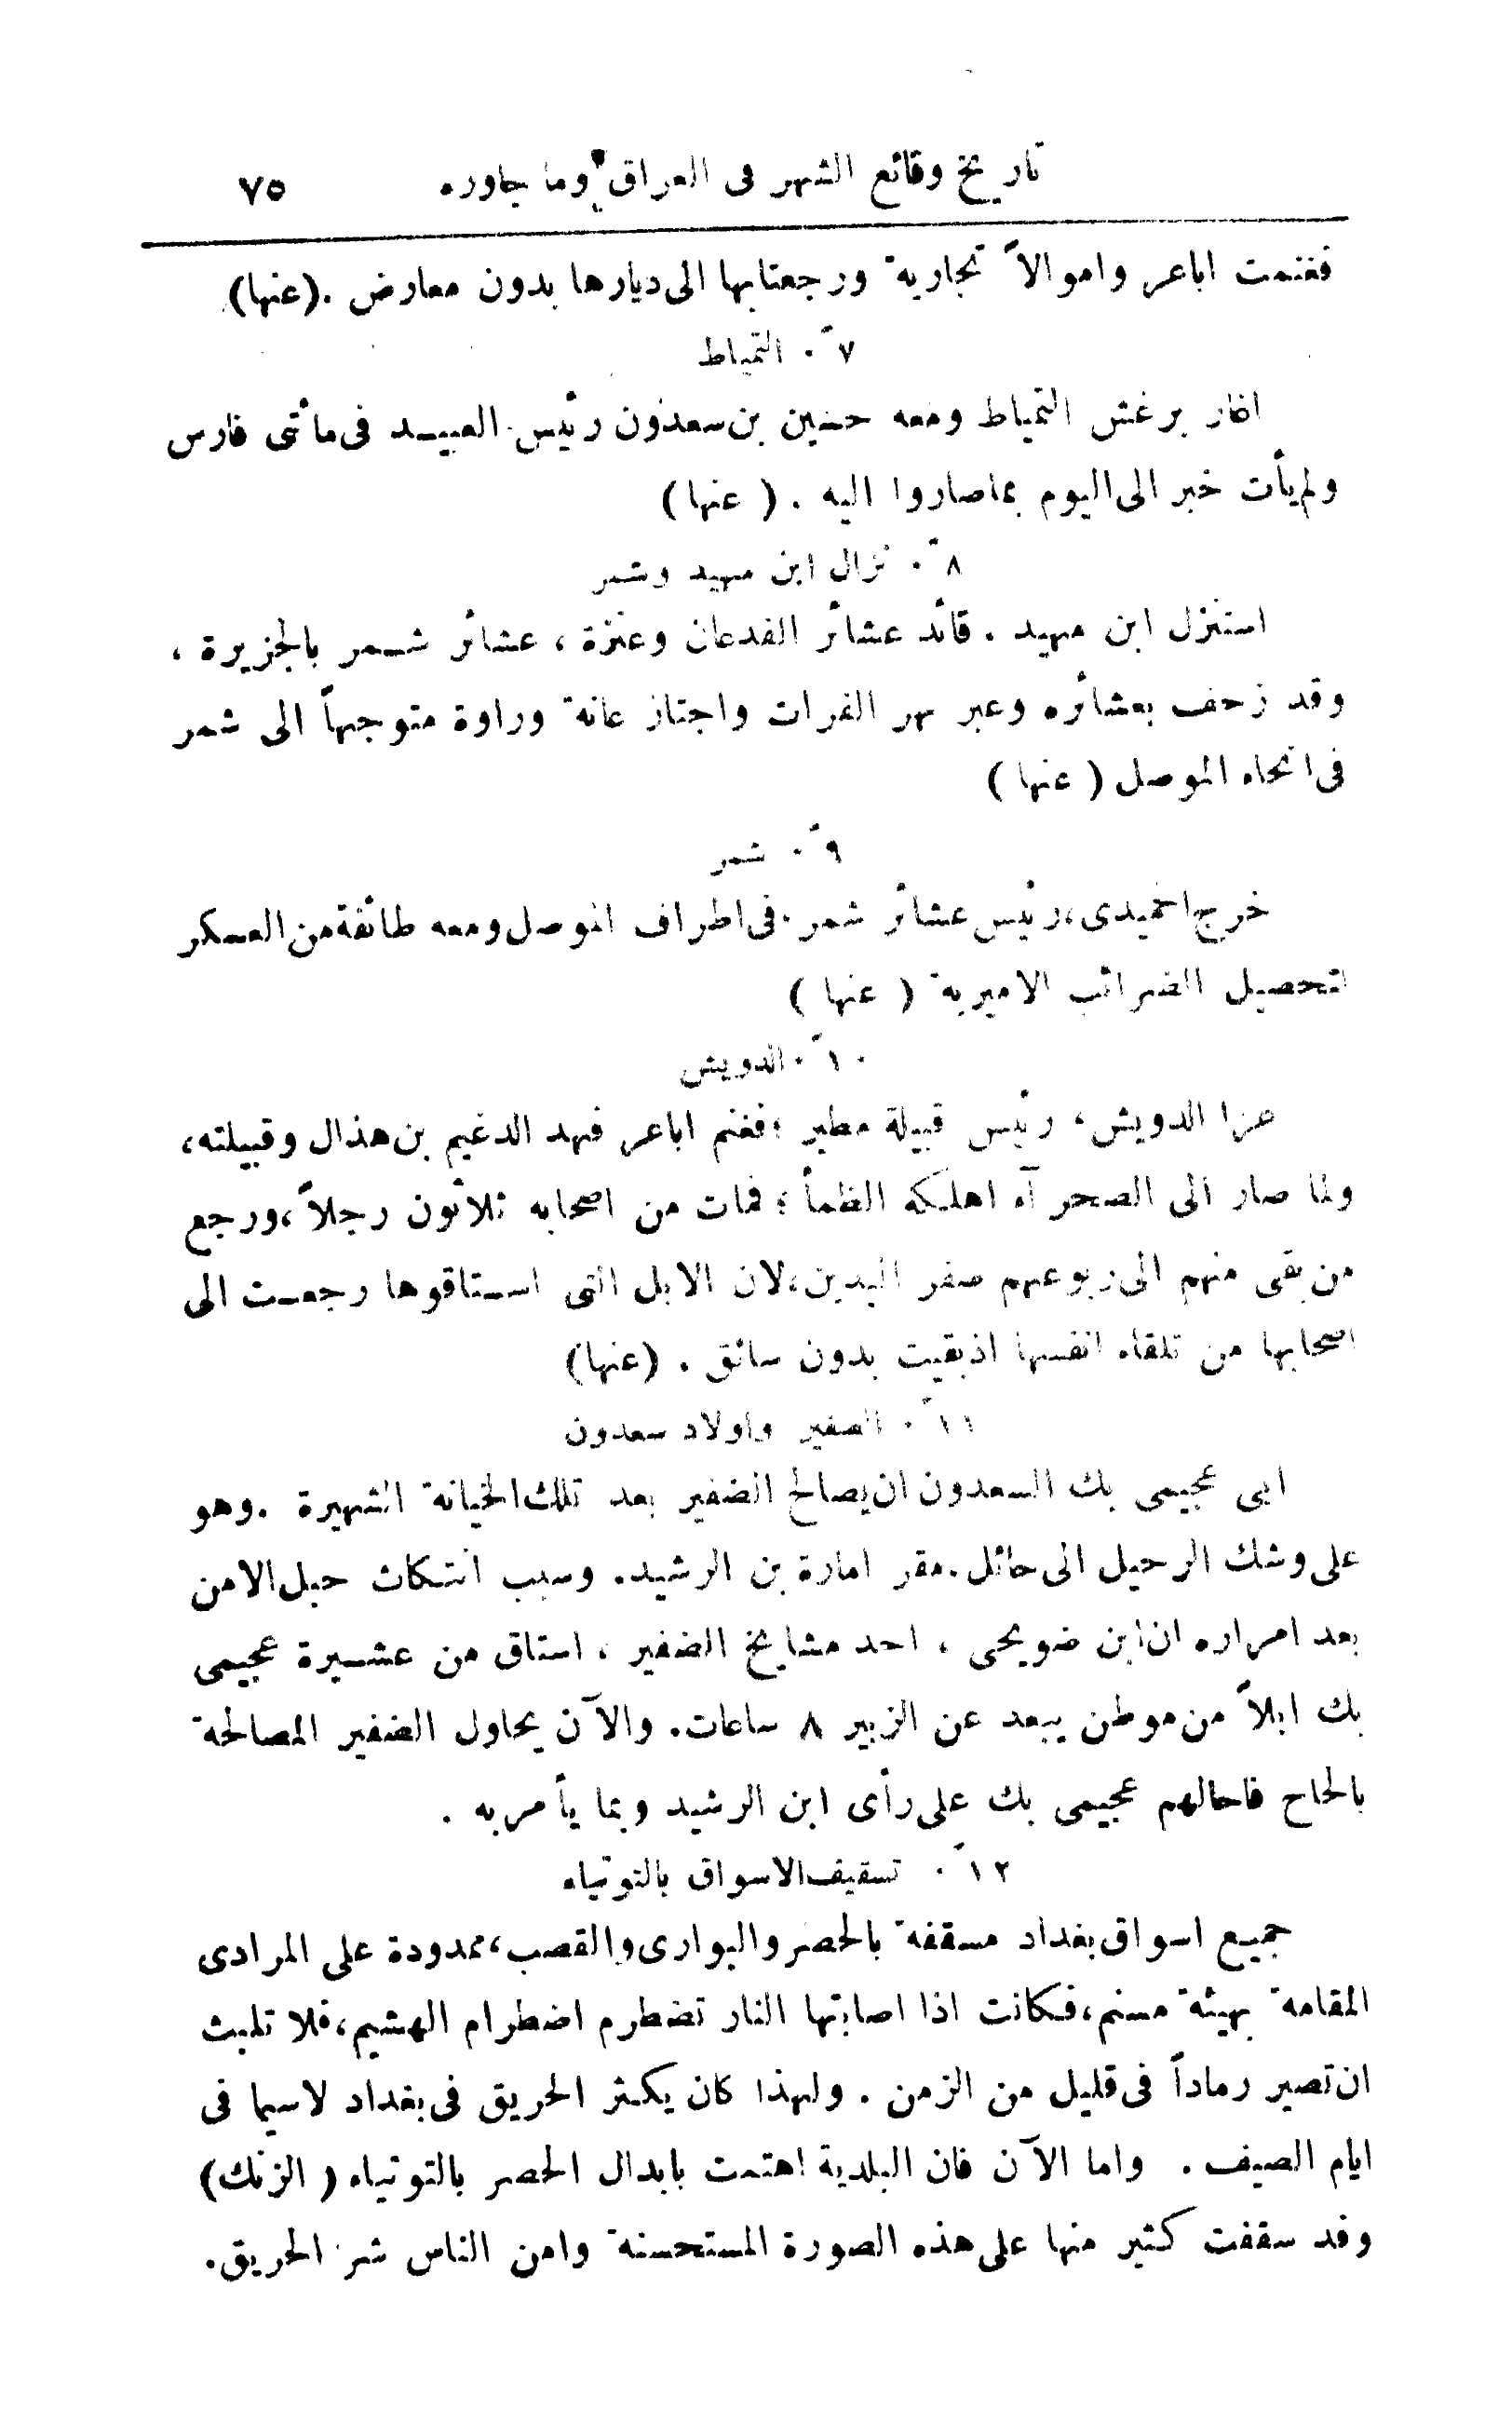 تاريخ وقائع الشهر فى العراق وما جاوره ٧٥
فغنمت اباعر واموالاً تجارية ورجعتا بها الى ديارها بدون معارض . (عنها)
٧ً . التمياط
اغار برغش التمياط ومعه حسين بن سعدون رئيس العبيد فى مائتى فارس
ولم يأت خبر الى اليوم بما صاروا اليه . ( عنها )
٨ً . نزال ابن مهيد وشمر
استنزل ابن مهيد . قائد عشائر الفدعان وعنزة ، عشائر شمر بالجزيرة ،
وقد زحف بعشائره وعبر نهر الفرات واجتاز عانة وراوة متوجهاً الى شمر
فى انحاء الموصل ( عنها )
٩ً . شمر
خرج الحميدى ، رئيس عشائر شمر . فى اطراف الموصل ومعه طائفة من العسكر
لتحصيل الضرائب الاميرية ( عنها )
١٠ً . الدويش
غزا الدويش ، رئيس قبيلة مطير ؛ فغنم اباعر فهد الدغيم بن هذال وقبيلته ،
ولما صار الى الصحرآء اهلكه الظمأ ؛ فمات من اصحابه ثلاثون رجلاً ، ورجع
من بقى منهم الى ربوعهم صفر اليدين ، لان الابل التى استاقوها رجعت الى
اصحابها من تلقاء انفسها اذ بقيت بدون سائق . (عنها)
١١ً . الضفير واولاد سعدون
ابى عجيمى بك السعدون ان يصالح الضفير بعد تلك الخيانة الشهيرة . وهو
على وشك الرحيل الى حائل . مقر امارة بن الرشيد . وسبب انتكاث حبل الامن
بعد امراره ان ابن ضويحى ، احد مشايخ الضفير ، استاق من عشيرة عجيمى
بك ابلاً من موطن يبعد عن الزبير ٨ ساعات . والآن يحاول الضفير المصالحة
بالحاح فاحالهم عجيمى بك على رأى ابن الرشيد وبما يأمر به .
١٢ً . تسقيف الاسواق بالتوتياء
جميع اسواق بغداد مسقفة بالحصر والبوارى والقصب ، ممدودة على المرادى
المقامة بهيئة مسنم ، فكانت اذا اصابتها النار تضطرم اضطرام الهشيم ، فلا تلبث
ان تصير رماداً فى قليل من الزمن . ولهذا كان يكثر الحريق فى بغداد لاسيما فى
ايام الصيف . واما الآن فان البلدية اهتمت بابدال الحصر بالتوتياء ( الزنك )
وقد سقفت كثير منها على هذه الصورة المستحسنة وامن الناس شر الحريق .